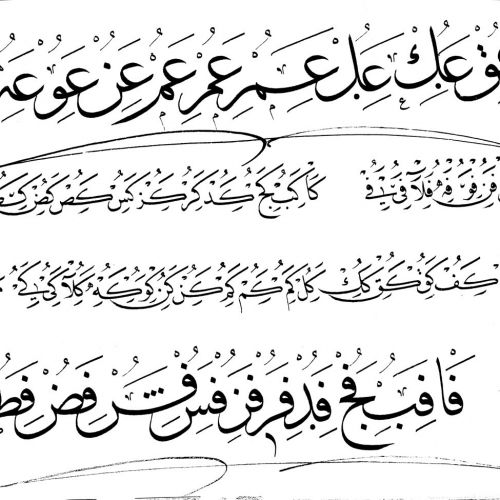 عك عل عم عم عم عن عو عه
فن فو فه فلا فى في كا كب كج كد كر كز كس كص كض
كف كق كك كل كم كم كم كن كو كه كلا كى كي
فا فب فج فد فر فز فس فض فط